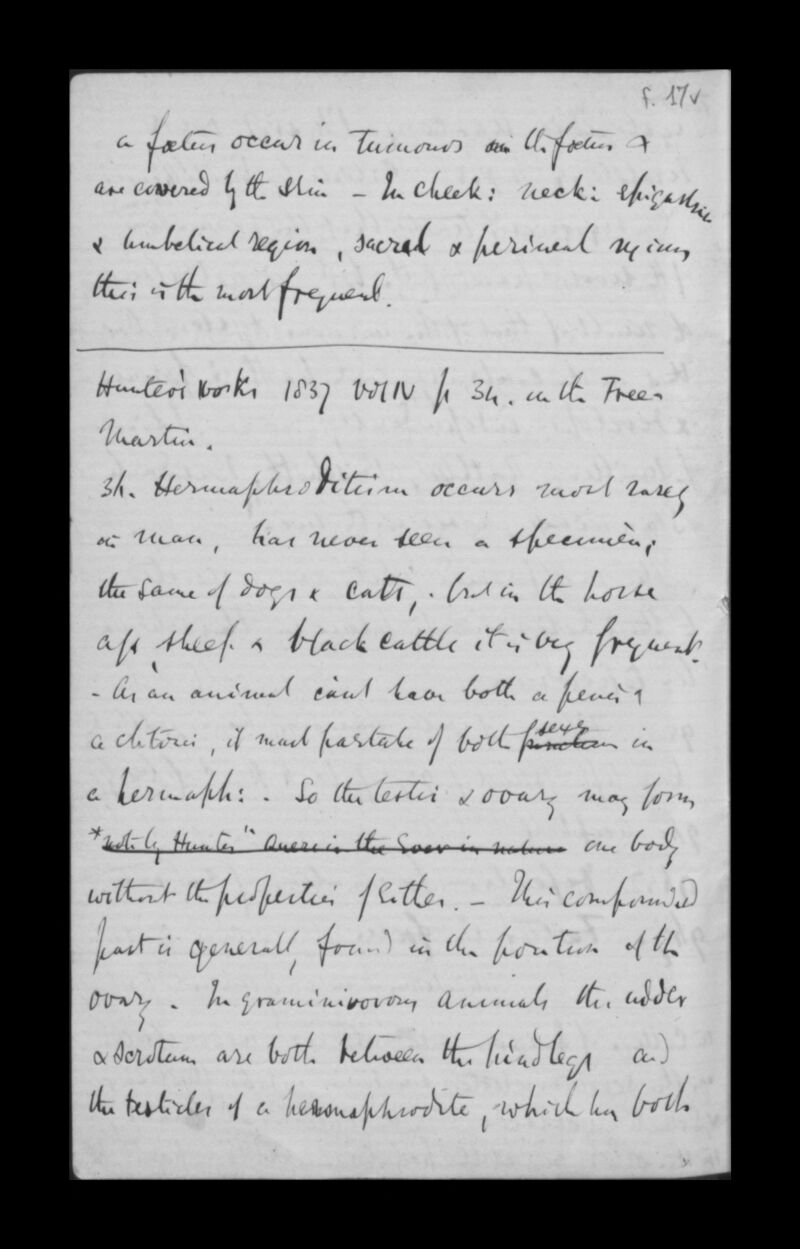 f. 17v
a foetus occur in tumours in the foetus &
are covered by the skin – In cheek: neck: epigastric
& umbelical region, sacral & perineal regions
this is the most frequent.
Hunter's Works 1837 Vol IV p 34. on the Free
Martin.
34. Hermaphroditism occurs most rarely
in man, has never seen a specimen;
the same of dogs & catts, . but in the horse
ass, sheep & black cattle it is very frequent.
- As an animal cant have both a penis &
a clitoris, it must partake of both sexes in
a hermaph: . So the testis & ovary may form
* note by Hunter " Quere is there ever in nature one body
without the properties of either. – This compounded
part is generally found in the position of the
ovary . In graminivorous animals the udder
& scrotum are both between the hind legs and
the testicles of a hermaphrodite, which has both